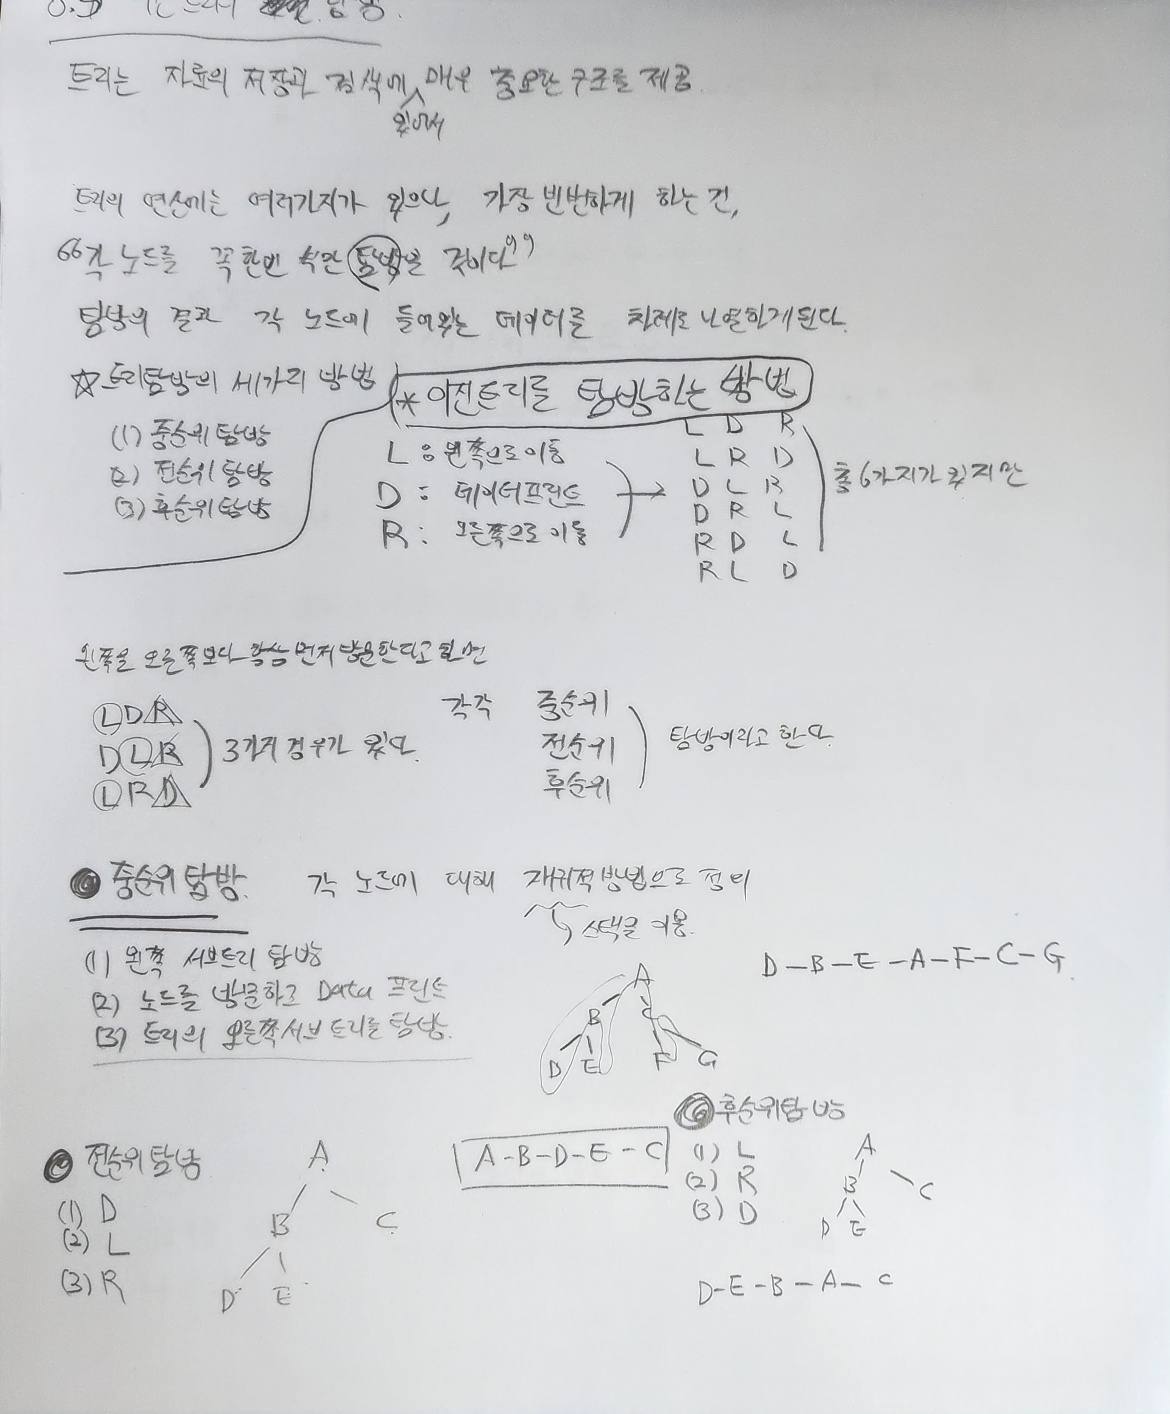 트리는 자료의 저장과 검색에 있어서 매우 중요한 구조를 제공.
트리의 연산에는 여러가지가 있으나, 가장 빈번하게 하는 건,
"각 노드를 꼭 한번 씩만 탐방을 것이다"
탐방의 결과 각 노드에 들어있는 데이터를 차례로 나열하게된다.
☆트리탐방의 세가지 방법
(1) 중순위 탐방
(2) 전순위 탐방
(3) 후순위 탐방
* 이진트리를 탐방하는 방법
L : 왼쪽으로 이동
D : 데이터프린트
R : 오른쪽으로 이동
L D R
L R D
D L R
D R L
R D L
R L D
총 6가지가 있지만
왼쪽을 오른쪽보다 항상 먼저 방문한다고 하면
L D R
D L R
L R D
3가지 경우가 있다.
각각 중순위
전순위
후순위
탐방이라고 한다.
중순위 탐방. 각 노드에 대해 재귀적방법으로 정의
스택을 이용.
(1) 왼쪽 서브트리 탐방
(2) 노드를 방문하고 Data 프린트
(3) 트리의 오른쪽 서브 트리를 탐방.
A
B C
D E F G
D-B-E-A-F-C-G
전순위 탐방
(1) D
(2) L
(3) R
A
B C
D E
A-B-D-E-C
후순위탐방
(1) L
(2) R
(3) D
A
B C
D E
D-E-B-A-C